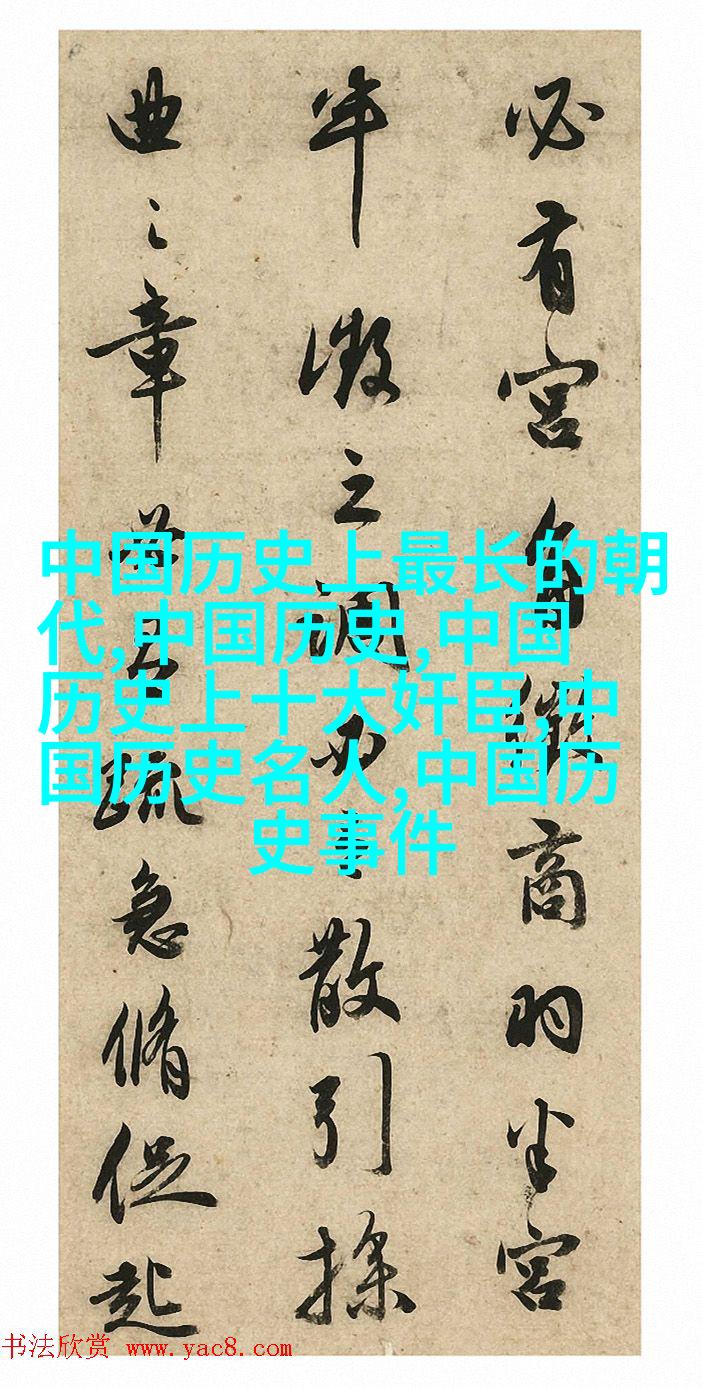 必有宫角徵商羽半宫
半徵之調而散引操
曲之章疏急脩促起
中国历史上最长的朝
代,中国历史,中国
历史上十大奸臣,中
国历史名人,中国历
史事件
书法欣赏 www.yac8.com